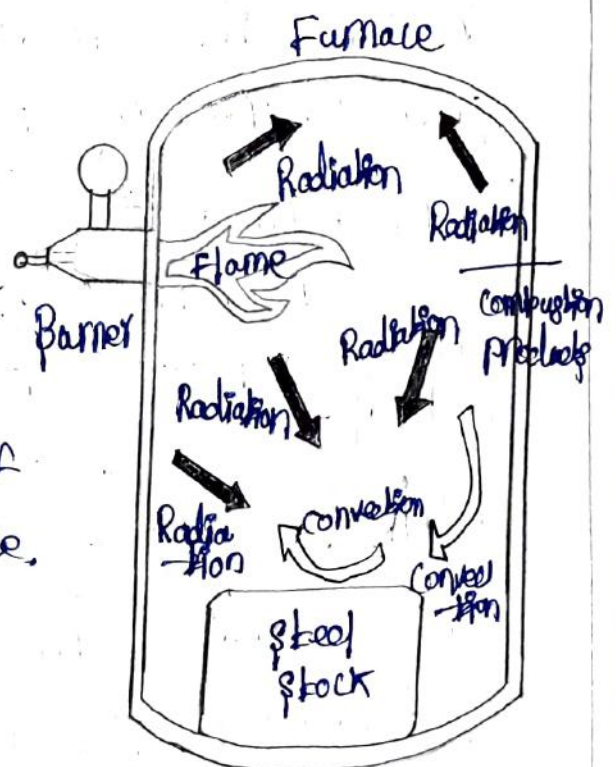 Furnace
Radiation
Radiation
Flame
Burner
Radiation
combustion
products
Radiation
Radia
-tion
convection
convec
-tion
Steel
Stock